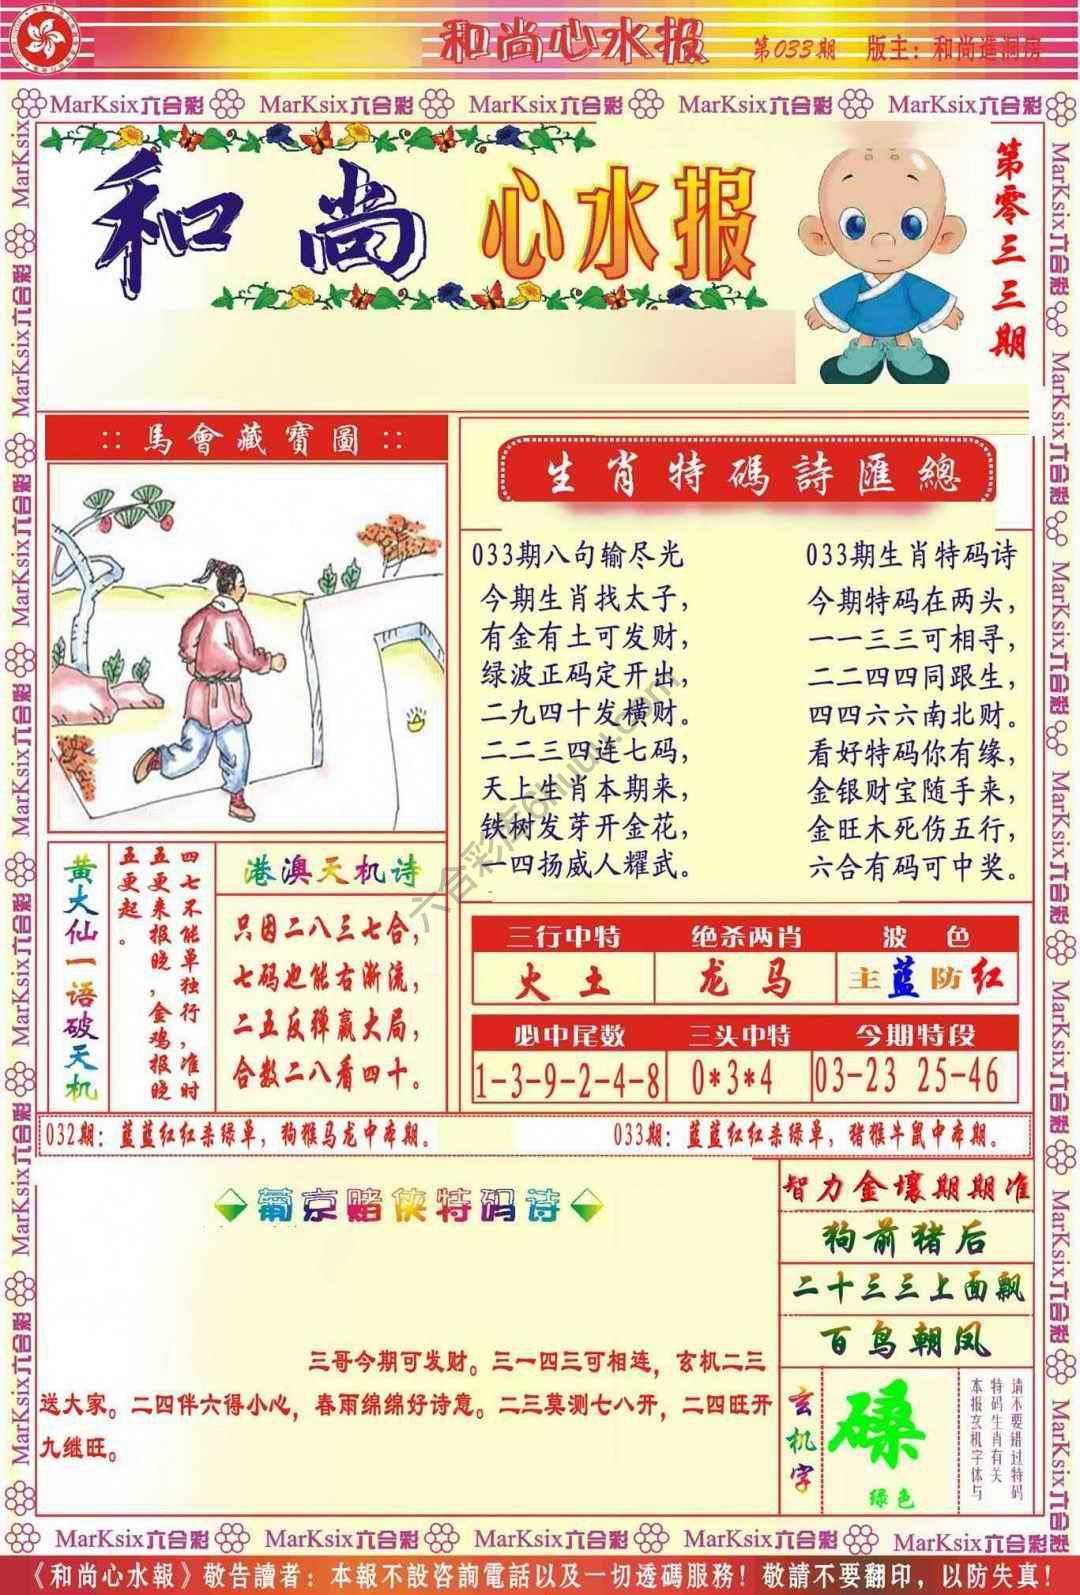 和尚心水报 第033期 版主：和尚進洞房
MarKsix六合彩 MarKsix六合彩 MarKsix六合彩 MarKsix六合彩 MarKsix六合彩
和尚心水报
第零三三期
::馬會藏寶圖::
生肖特碼詩匯總
033期八句输尽光
今期生肖找太子，
有金有土可发财，
绿波正码定开出，
二九四十发横财。
二二三四连七码，
天上生肖本期来，
铁树发芽开金花，
一四扬威人耀武。
033期生肖特码诗
今期特码在两头，
一一三三可相寻，
二二四四同跟生，
四四六六南北财。
看好特码你有缘，
金银财宝随手来，
金旺木死伤五行，
六合有码可中奖。
六合彩库6huu.com
黄大仙一语破天机
四七不能单独行，准时
五更来报晓，金鸡报晓
五更起。
港澳天机诗
只因二八三七合，
七码也能右渐流，
二五反弹赢大局，
合数二八看四十。
三行中特 绝杀两肖 波色
火土 龙马 主蓝防红
必中尾数 三头中特 今期特段
1-3-9-2-4-8 0*3*4 03-23 25-46
032期：蓝蓝红红杀绿单，狗猴马龙中本期。
033期：蓝蓝红红杀绿单，猪猴牛鼠中本期。
葡京赌侠特码诗
三哥今期可发财。三一四三可相连，玄机二三
送大家。二四伴六得小心，春雨绵绵好诗意。二三莫测七八开，二四旺开
九继旺。
智力金壤期期准
狗前猪后
二十三三上面飘
百鸟朝凤
玄机字
磉
绿色
请不要错过特码
特码生肖有关
本报玄机字体与
MarKsix六合彩 MarKsix六合彩 MarKsix六合彩 MarKsix六合彩 MarKsix六合彩
《和尚心水報》敬告讀者：本報不設咨詢電話以及一切透碼服務！敬請不要翻印，以防失真！